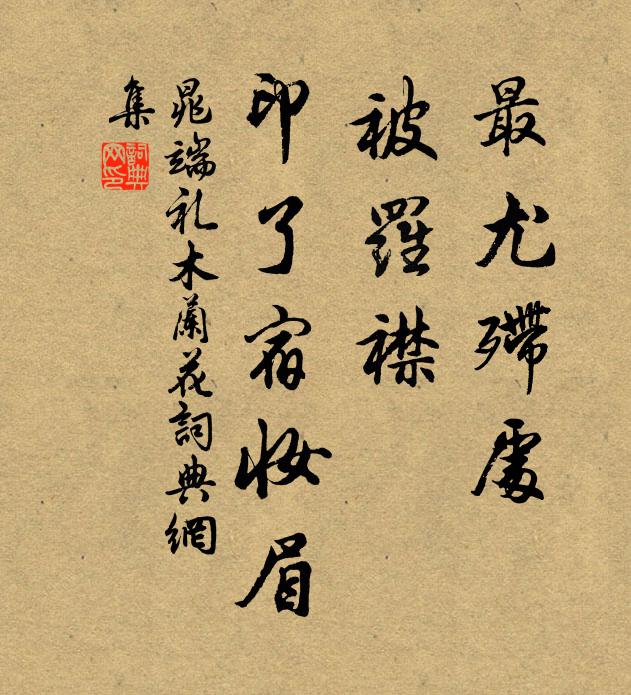 最尤殢處
被羅襟
印了宿妝眉
晁端礼木蘭花詞典網
集
詞典网印